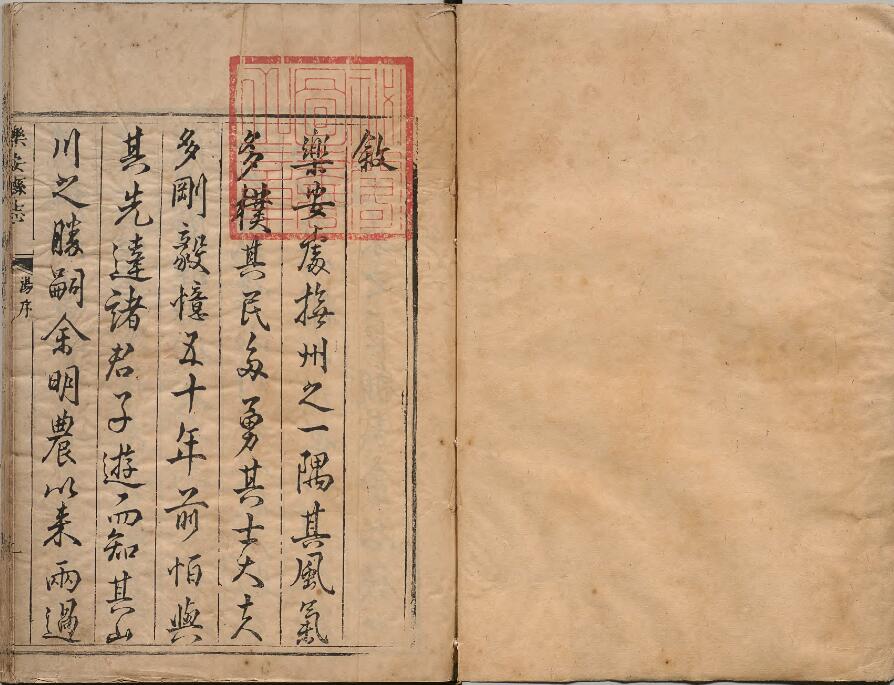 敘
樂安處撫州之一隅其風氣
多樸其民多勇其士大夫
多剛毅憶五十年前怕與
其先達諸君子遊而知其山
川之勝嗣余明農以来兩過
樂安縣志
湯序